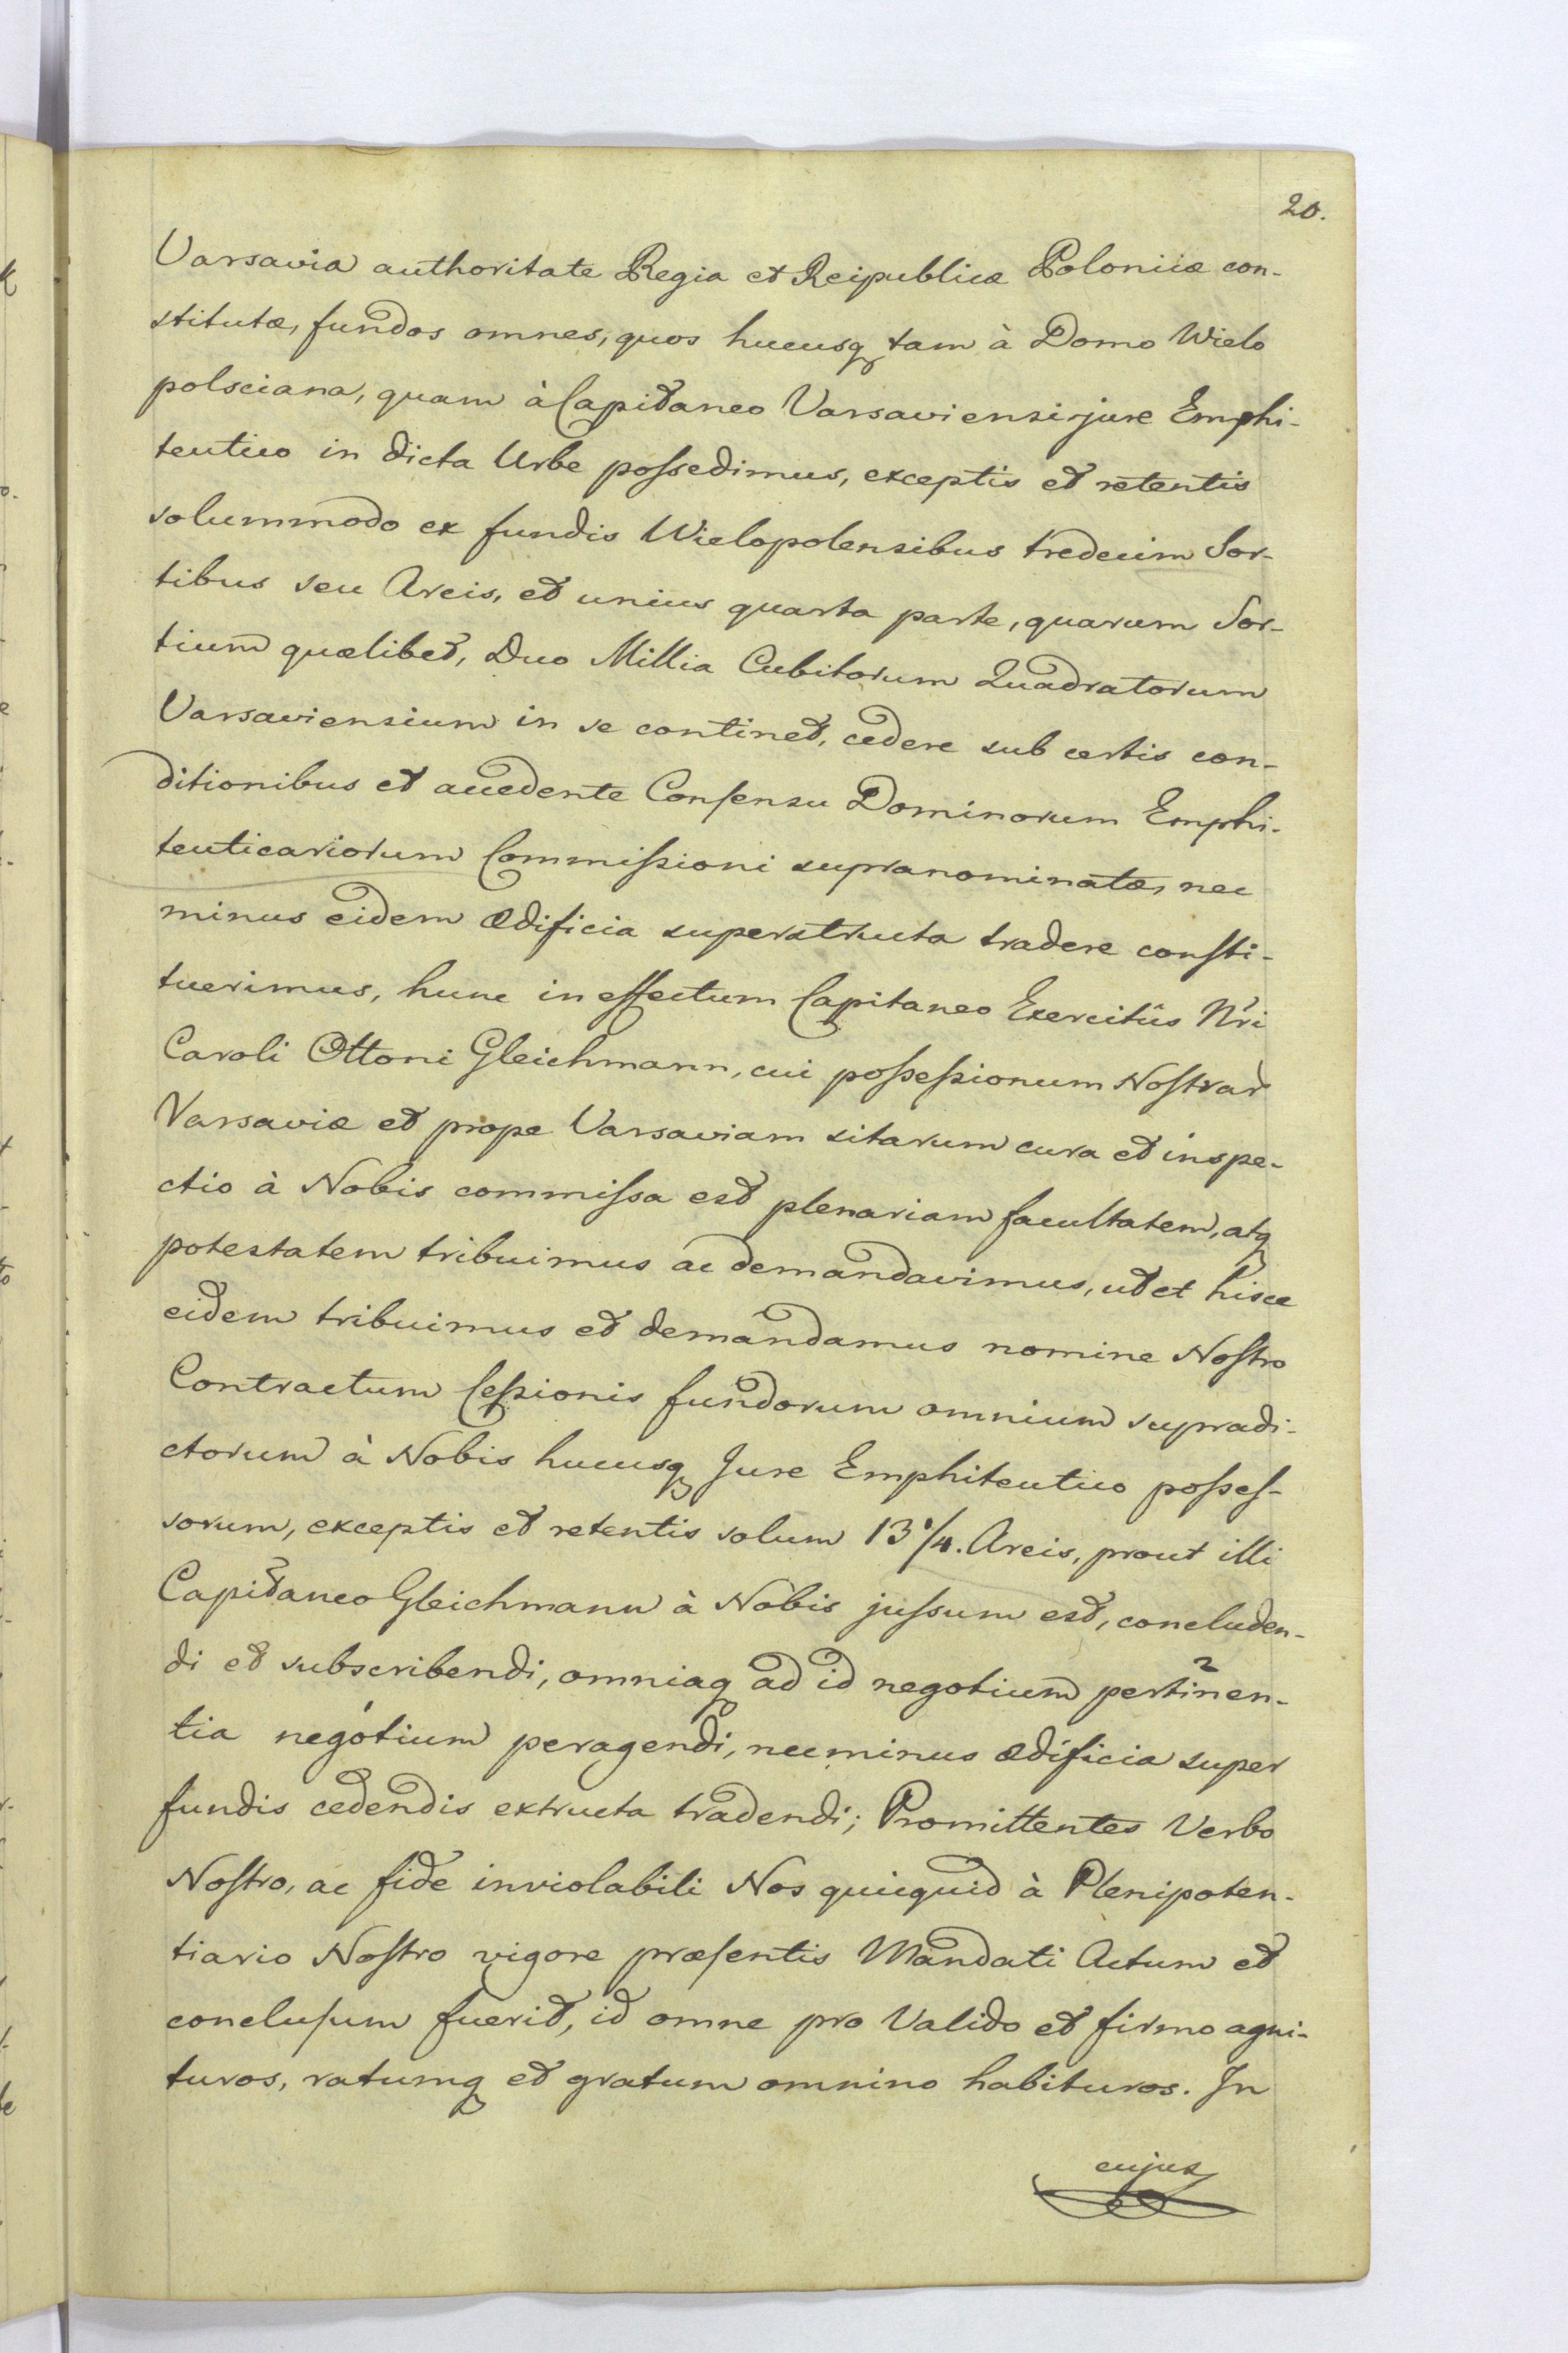 20.
Varsavia authoritate Regia et Reipublicæ Poloniæ con-
stitutæ, fundos omnes, quos hucusq tam à Domo Wielo
polsciana, quam à Capitaneo Varsaviensi jure Emphi-
teutico in dicta Urbe poſsedimus, exceptis et retentis
solummodo ex fundis Wielopolensibus tredecim Sor-
tibus seu Areis, et unius quarta parte, quarum Sor-
tium quælibet, Duo Millia Cubitorum Quadratorum
Varsaviensium in se continet, cedere sub certis con-
ditionibus et accedente Conſensu Dominorum Emphi-
teuticariorum Commiſsioni supranominatæ, nec
minus eidem ædificia superstructa tradere conſti-
tuerimus, hunc in effectum Capitaneo Exercitûs Nri
Caroli Ottoni Gleichmann, cui poſseſsionum Noſtrar
Varsaviæ et prope Varsaviam sitarum cura et inspe-
ctio à Nobis commiſsa est plenariam facultatem, atq
potestatem tribuimus ac demandavimus, ut et hisce
eidem tribuimus et demandamus nomine Noſtro
Contractum Ceſsionis fundorum omnium supradi-
ctorum à Nobis hucusq Jure Emphiteutico poſseſ-
sorum, exceptis et retentis solum 13 1/4. Areis, prout illi
Capitaneo Gleichmann à Nobis juſsum est, concluden-
di et subscribendi, omniaq ad id negotium pertinen-
tia negótium peragendi, nec minus ædificia super
fundis cedendis extructa tradendi; Promittentes Verbo
Noſtro, ac fide inviolabili Nos quicquid à Plenipoten-
tiario Noſtro vigore præſentis Mandati Actum et
concluſum fuerit, id omne pro Valido et firmo agni-
turos, ratumq et gratum omnino habituros. In
cujus